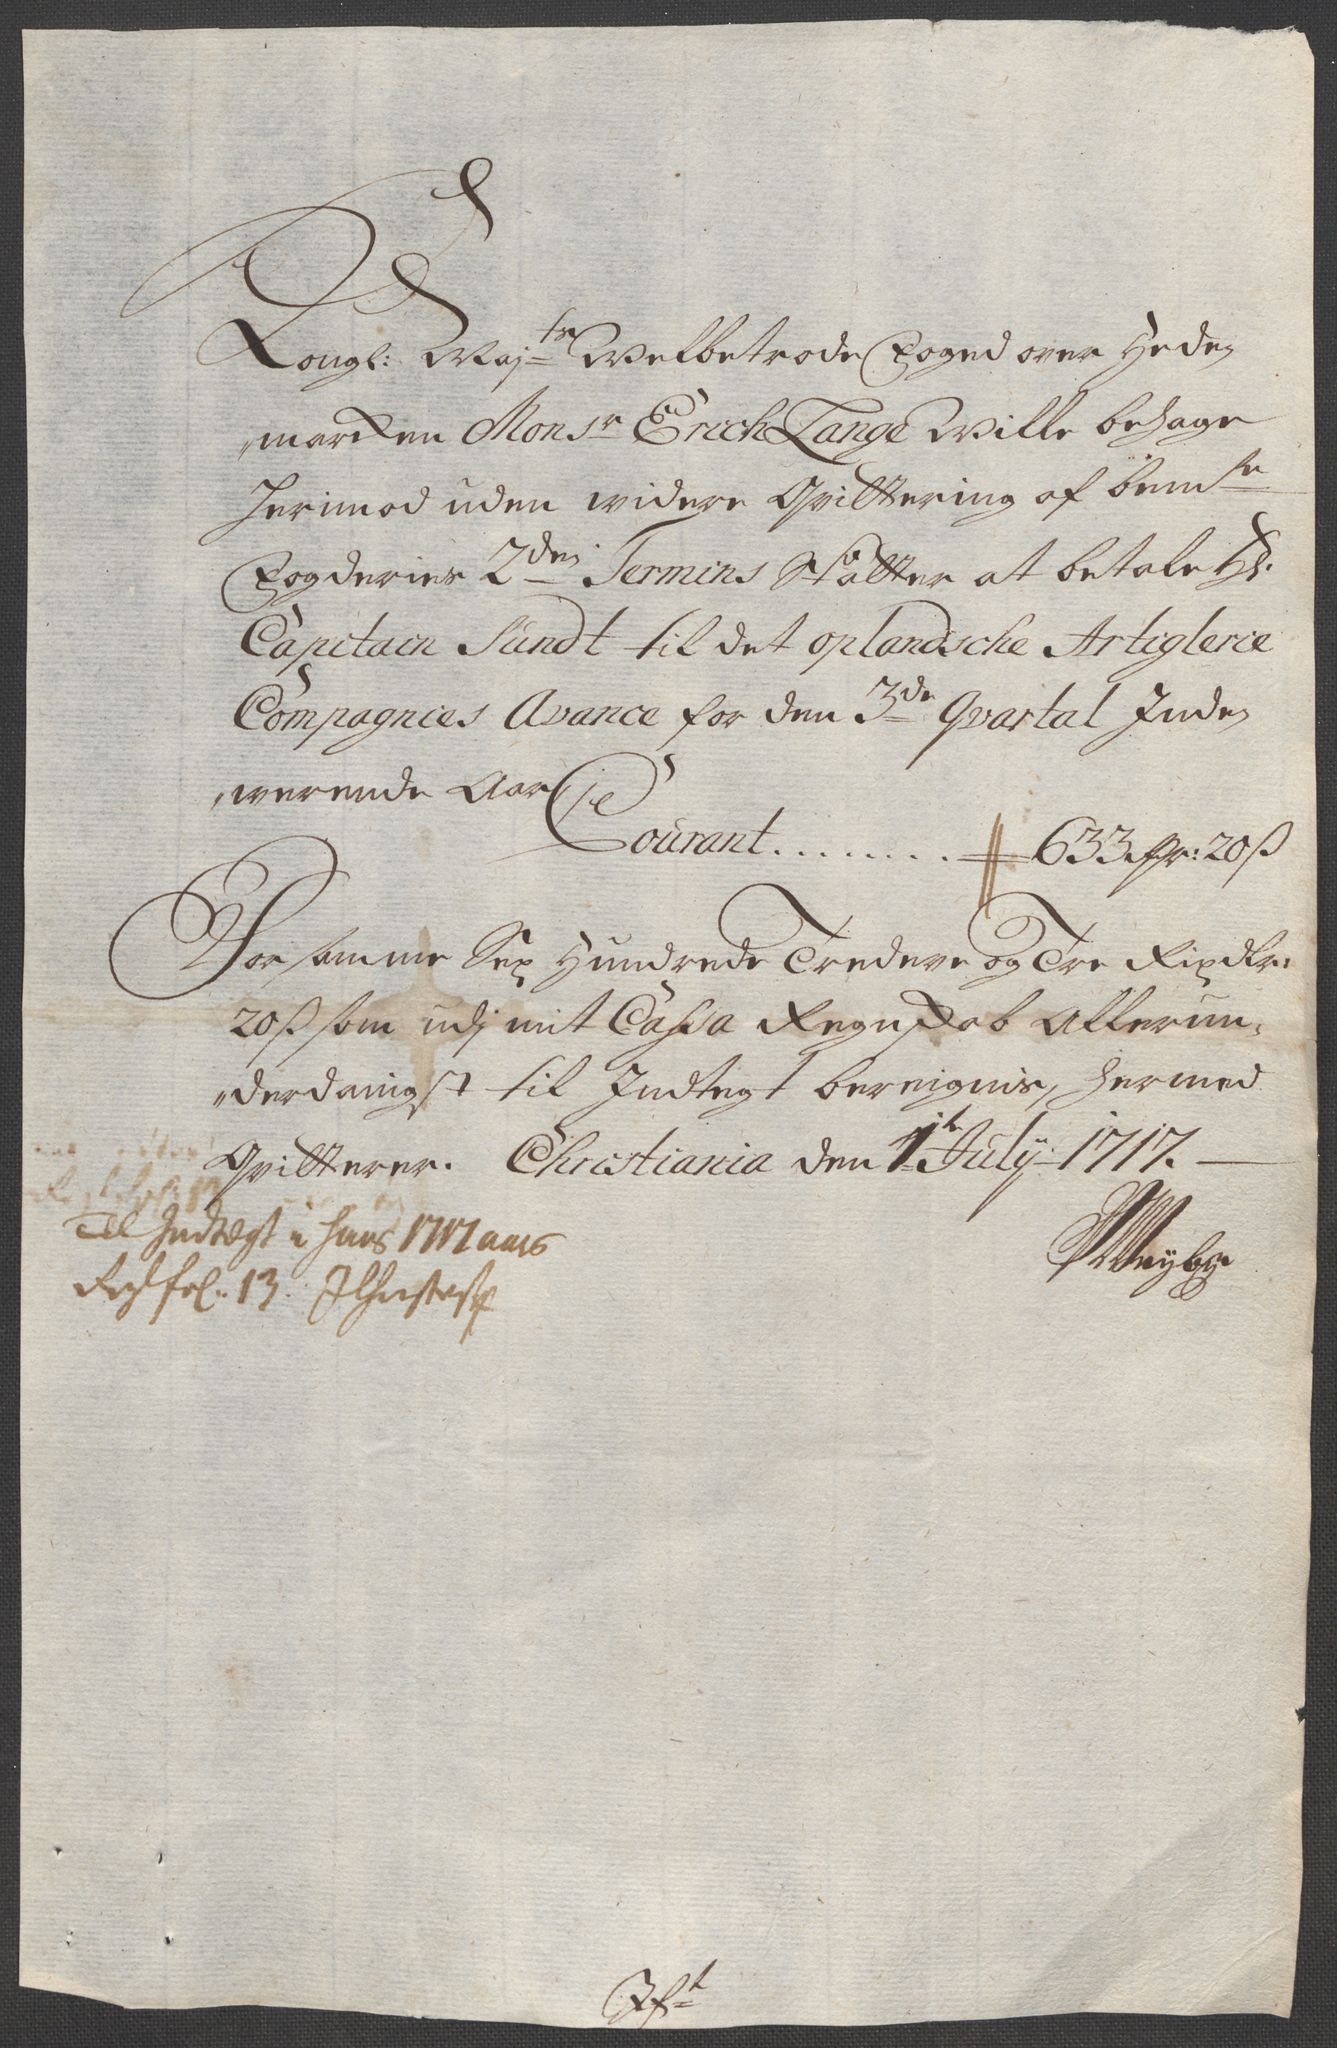 Kongl: Maj.ts Welbetrode Foged over Heden
marken Monsr Erich Lange Wille behage
herimod uden widere Qvittering af bemte
Fogderies 2den Termins Skatter at betale Hr.
Capitain Sundt til det oplandische Artiglerie
Compagnies Avance for den 3de Qvartal Inde
werende Aar
Courant........ 633 Rdr: 20 ß
For samme Sex Hundrede Tredeve og Tre Rixdlr:
20 ß som udj mit Cassa Regnskab Allerun,
derdanigst til Indtegt bereignis, hermed
Qvitterer. Christiania den 1te July 1717.
Til Indtægt i hans 1717 aars
Regsk: fol: 13.